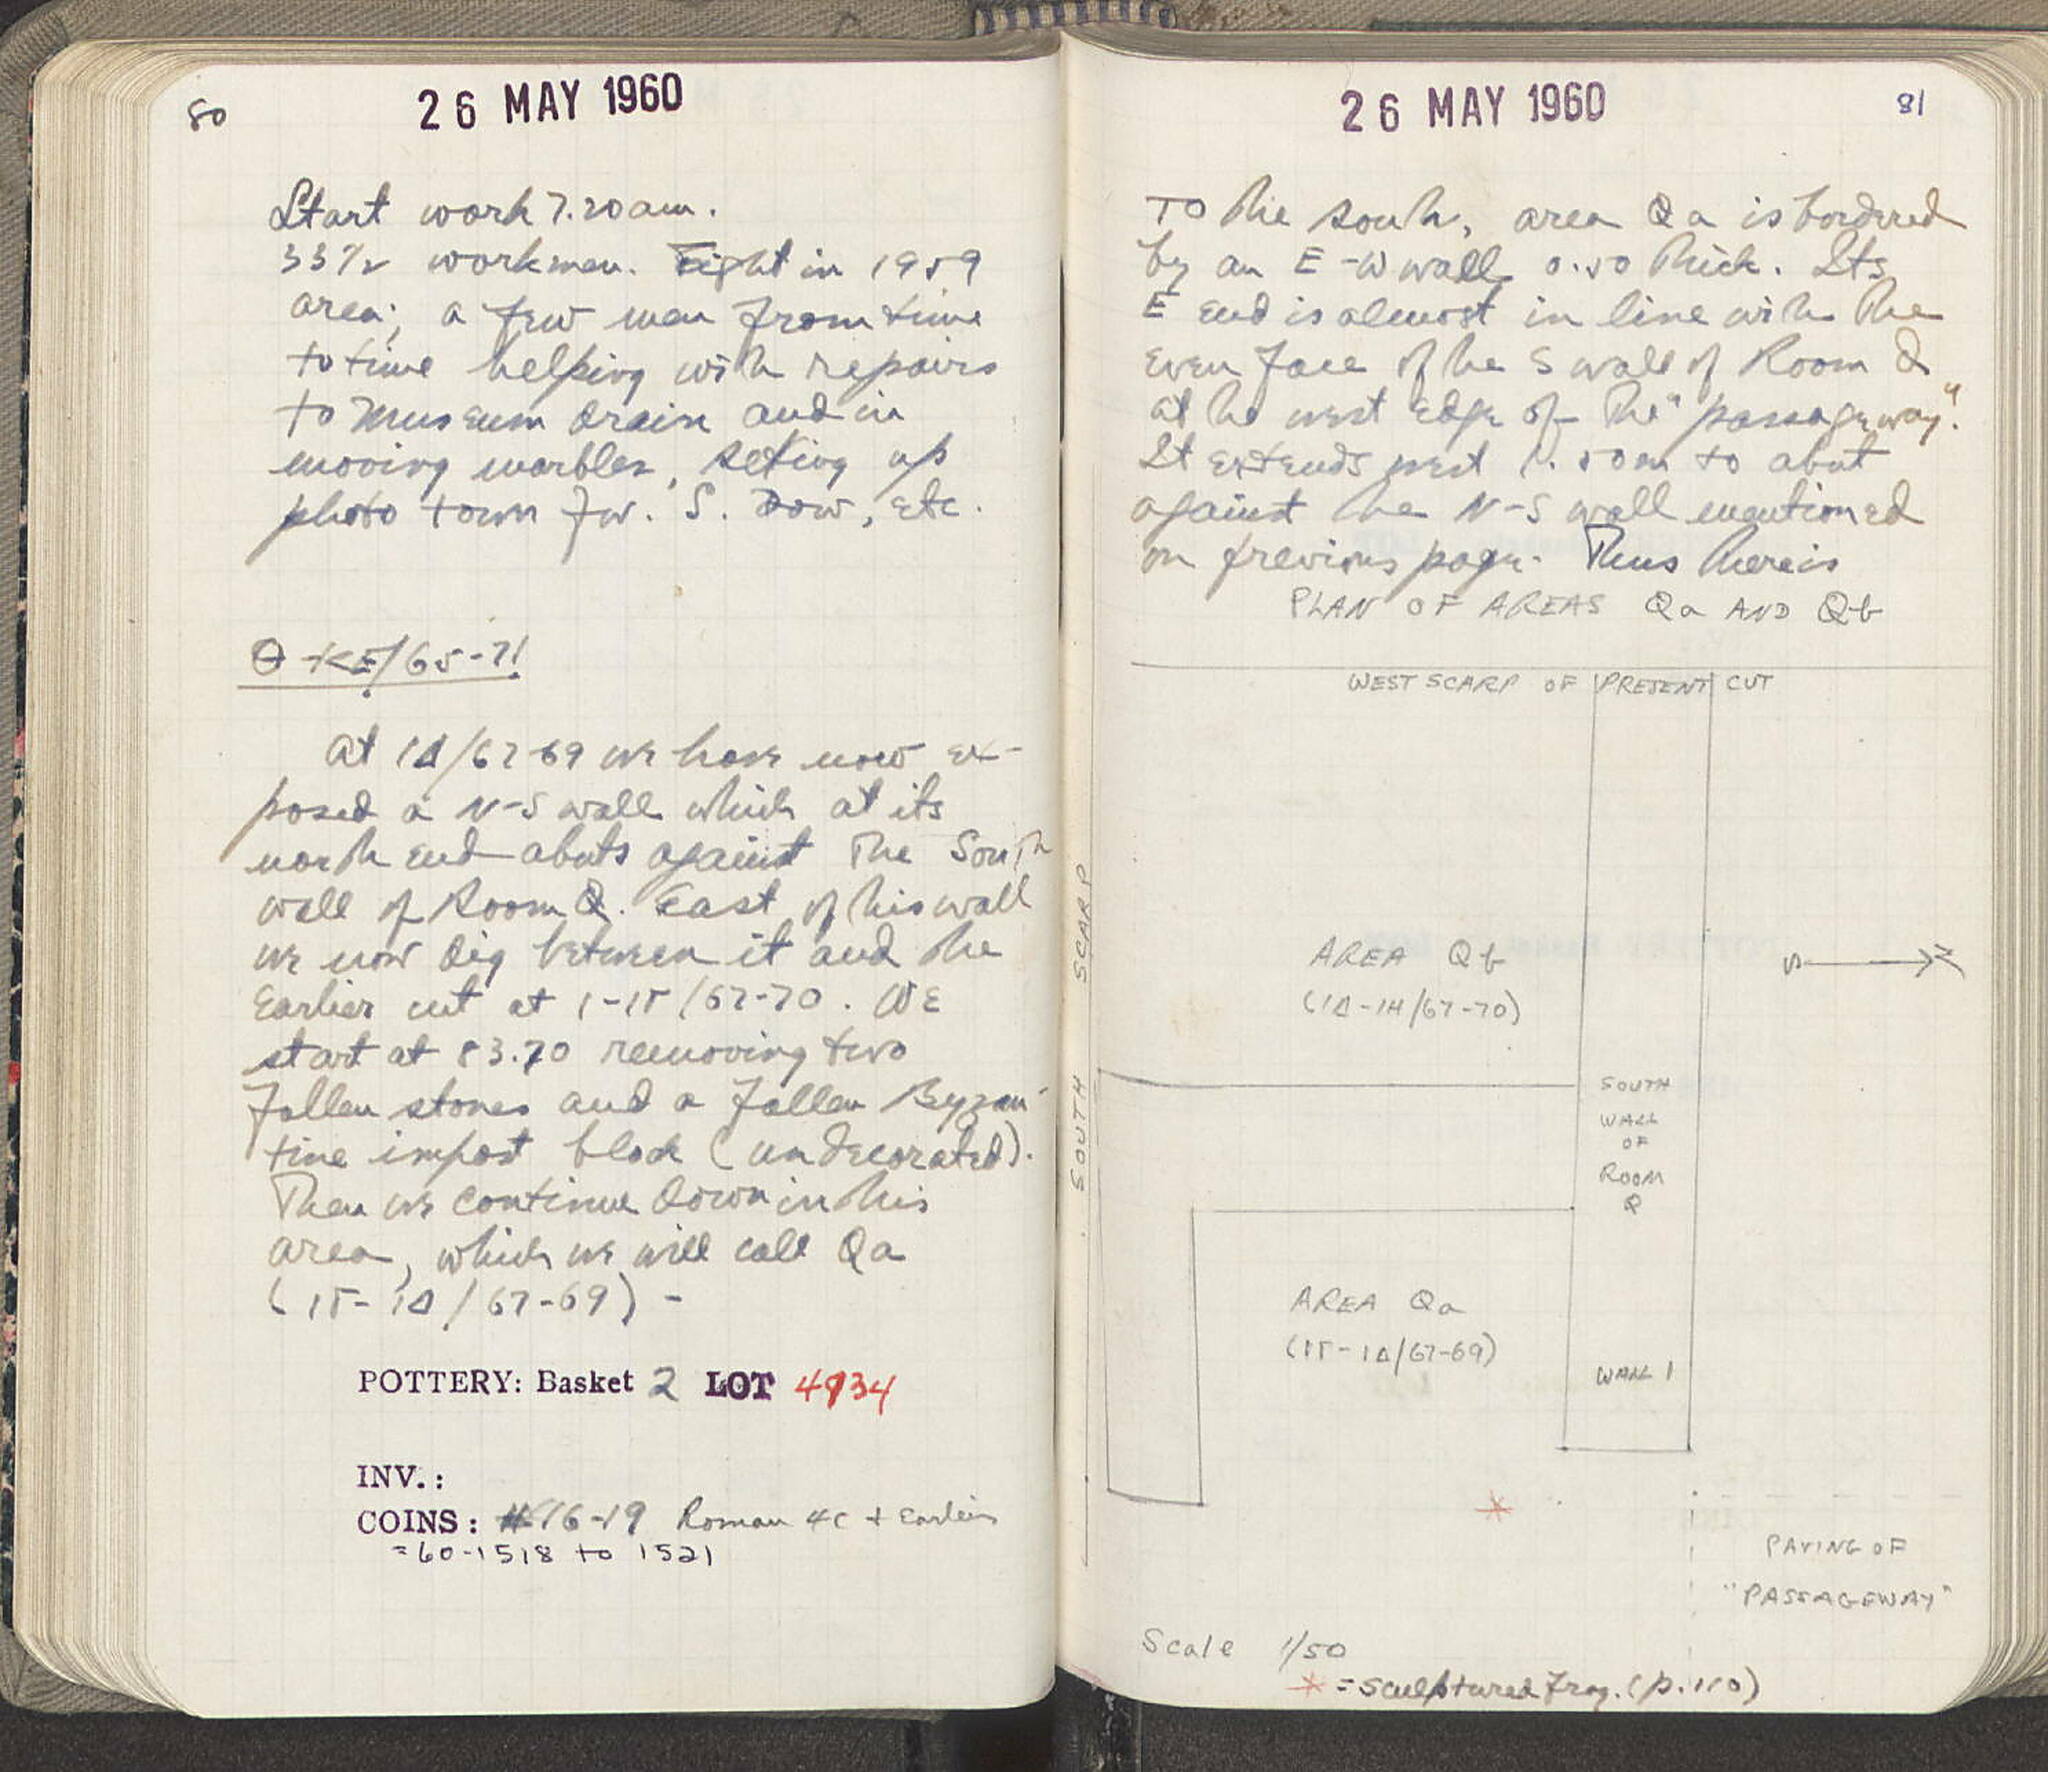 80
26 MAY 1960
Start work 7.20 am.
33½ workmen. Eight in 1959
area; a few men from time
to time helping with repairs
to Museum drain and in
moving marbles, setting up
photo town for S. Dow, etc.
Θ-KE/65-71
At 1Δ/67-69 we have now ex-
posed a N-S wall which at its
north end abuts against the South
wall of Room Q. East of this wall
we now dig between it and the
earlier cut at 1-1Γ/67-70. We
start at 83.70 removing two
fallen stones and a fallen Byzan-
tine impost block (undecorated).
Then we continue down in this
area, which we will call Qa
(1Γ-1Δ/67-69) -
POTTERY: Basket 2 LOT 4934
INV.:
COINS: #16-19 Roman 4c + Earlier
=60-1518 to 1521
26 MAY 1960
81
To the south, area Qa is bordered
by an E-W wall 0.50 thick. Its
E end is almost in line with the
even face of the S wall of Room Q
at the west edge of the "passageway".
It extends west 1.50m to abut
against the N-S wall mentioned
on previous page. Thus there is
PLAN OF AREAS Qa AND Qb
WEST SCARP OF PRESENT CUT
SOUTH SCARP
AREA Qb
(1Δ-1H/67-70)
S N
SOUTH
WALL
OF
ROOM
Q
AREA Qa
(1Γ-1Δ/67-69)
WALL 1
PAVING OF
"PASSAGEWAY"
Scale 1/50
* = sculptured frag. (p. 110)